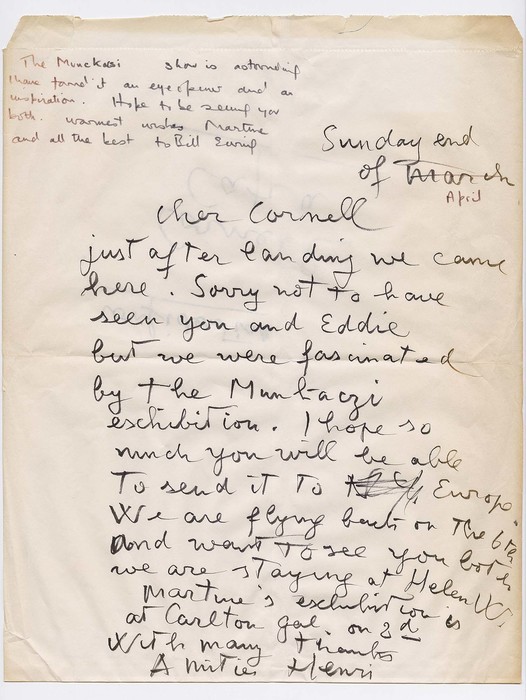 The Munckasi show is astounding
I have found it an eyeopener and an
inspiration. Hope to be seeing you
both. warmest wishes Martine
and all the best to Bill Ewing
Sunday end
of March
April
cher Cornell
just after landing we came
here. Sorry not to have
seen you and Eddie
but we were fascinated
by the Munkaczi
exhibition. I hope so
much you will be able
to send it to Europe
We are flying back on the 6th
and want to see you both
we are staying at Helen W.
Martine's exhibition is
at Carlton gal. on 3d
With many thanks
Amitiés Henri